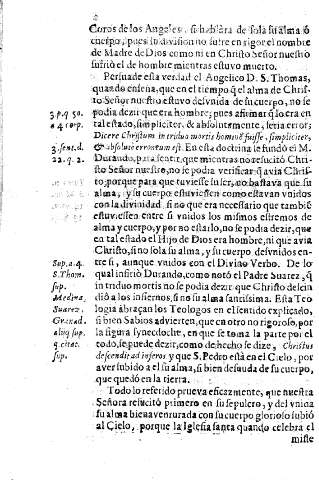 Coros de los Angeles, si hablàra de sola su alma ò
cuerpo, pues su division no sufre en rigor el nombre
de Madre de Dios como ni en Christo Señor nuestro
sufriò el de hombre mientras estuvo muerto.
Persuade esta verdad el Angelico D. S. Thomas,
quando enseña, que en el tiempo q̃ el alma de Chris-
to Señor nuestro estuvo desvnida de su cuerpo, no se
3. p. q. 50.
podia dezir que era hombre; pues afirmar q̃ lo era en
a 4. corp.
tal estado, simpliciter, & absolutemente, seria error:
Dicere Christum in triduo mortis hominẽ fuisse, simpliciter,
3. sent. d.
& absolutè erroneum est. En esta doctrina se fundò el M.
22. q. 2.
Durando, para sentir, que mientras no resucitò Chris-
to Señor nuestro, no se podia verificar q̃ avia Chris-
to; porque para que tuviesse su ser, no bastava que su
alma, y su cuerpo estuviessen como estavan vnidos
con la divinidad, sino que era necessario que tambiẽ
estuviessen entre si vnidos los mismos estremos de
alma y cuerpo, y por no estarlo, no se podia dezir, que
en tal estado el Hijo de Dios era hombre, ni que avia
Christo, si no sola su alma, y su cuerpo desvnidos en-
Sup. a. 4.
tre si, aunque vnidos con el Divino Verbo. De lo
S. Thom.
qual insistiò Durando, como notò el Padre Suarez, q̃
sup.
in triduo mortis no se podia dezir que Christo descen
Medina,
diò a los infiernos, si no su alma santissima. Esta Teo
Suarez.
logia abraçan los Teologos en el sentido explicado,
Granad.
si bien Sabios advierten, que en otro no rigoroso, por
alÿq sup.
la figura synecdoche, en que se toma la parte por el
q. citat.
todo, se puede dezir, como de hecho se dize, Christus
sup.
descendit ad inferos y que S. Pedro està en el Cielo, por
aver subido a el su alma, si bien desnuda de su cuerpo,
que quedò en la tierra.
Todo lo referido prueva eficazmente, que nuestra
Señora resucitò primero en su sepulcro, y despues vnida
su alma bienaventurada con su cuerpo glorioso subiò
al Cielo, porque la Iglesia santa quando celebra el
miste